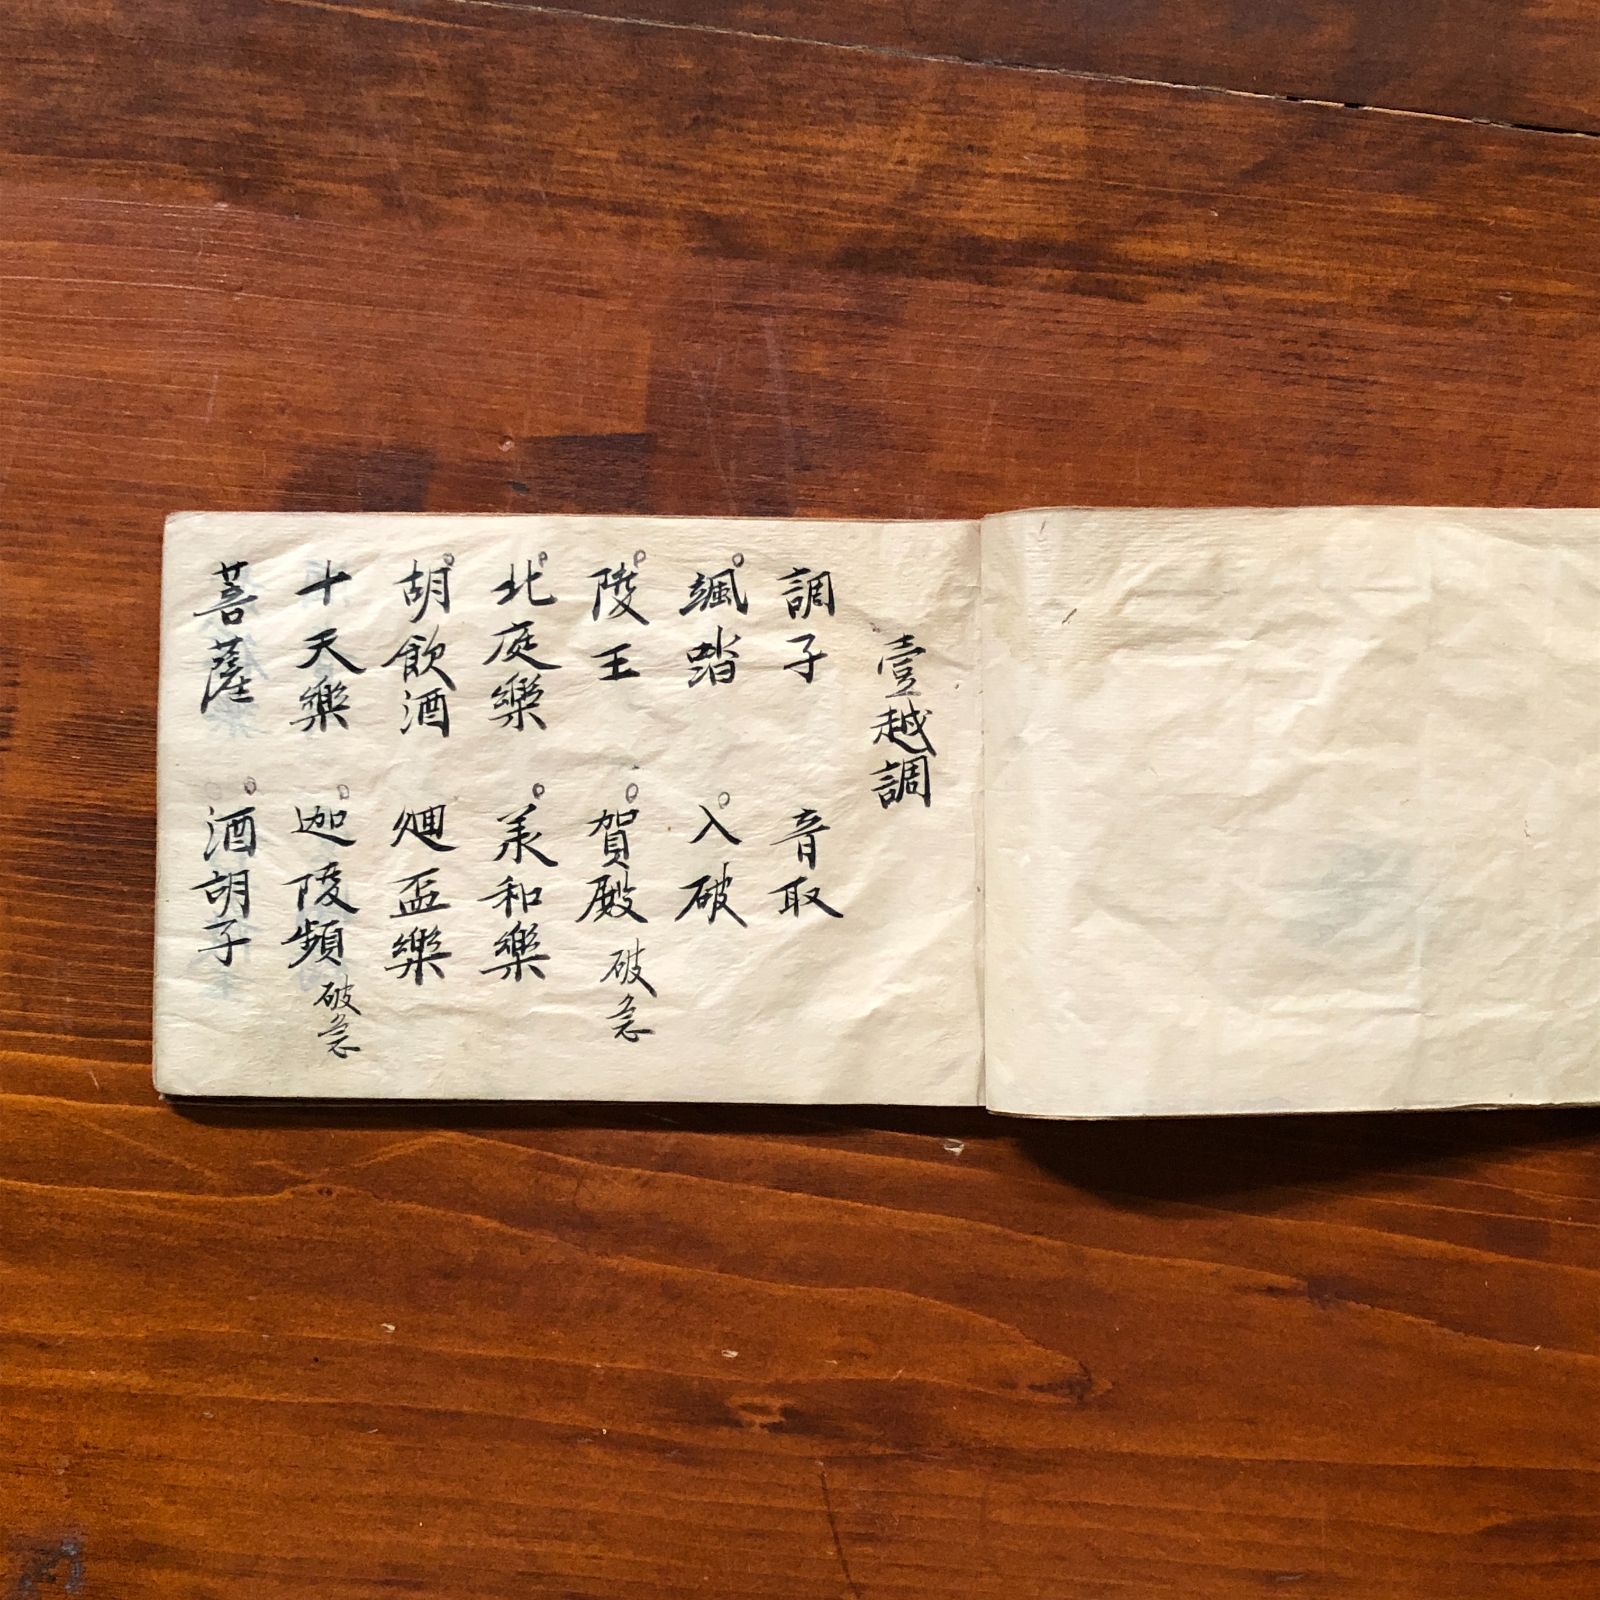 壹越調
調子 音取
颯踏 入破
陵王 賀殿 破急
北庭樂 羙和樂
胡飲酒 廻盃樂
十天樂 迦陵頻 破急
菩薩 酒胡子